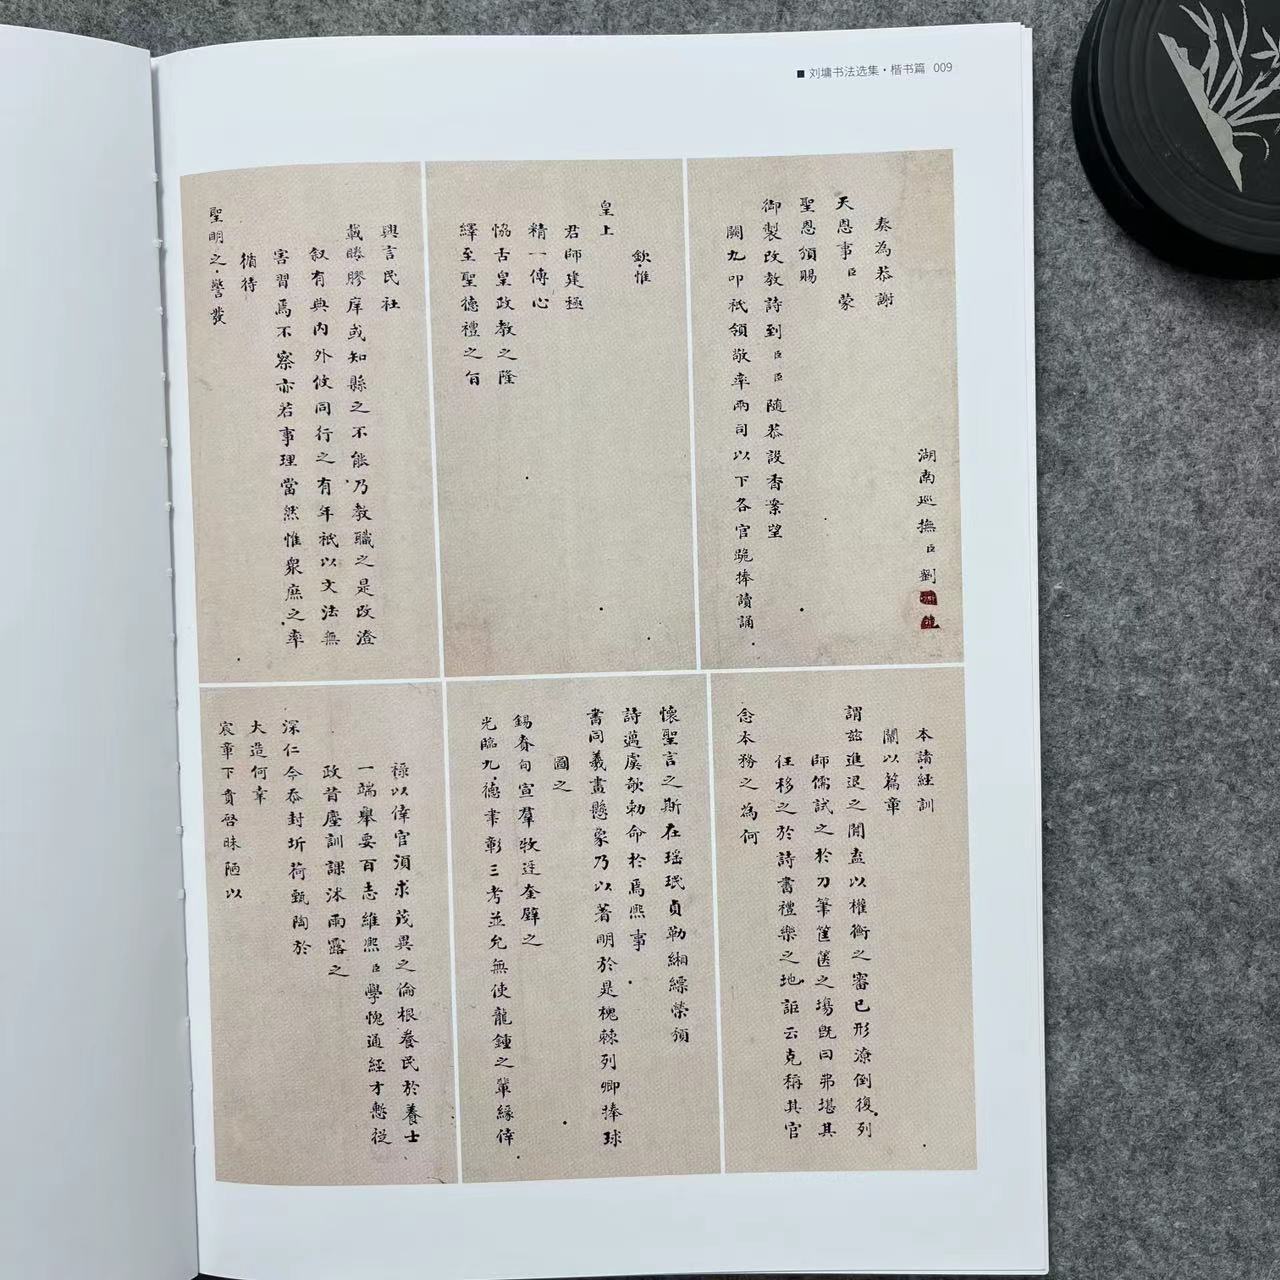 ■ 刘墉书法选集·楷书篇 009
湖南巡撫臣劉
奏為恭謝
天恩事臣蒙
聖恩頒賜
御製改教詩到臣臣隨恭設香案望
闕九叩祇領敬率兩司以下各官跪捧讀誦
欽惟
皇上
君師建極
精一傳心
協古皇政教之隆
繹至聖德禮之旨
興言民社
載睠膠庠或知縣之不能乃教職之是改澄
叙有典內外攸同行之有年祇以文法無
害習焉不察亦若事理當然惟衆庶之率
循待
聖明之警發
本請經訓
闡以篇章
謂茲進退之閒盍以權衡之審已形潦倒復列
師儒試之於刀筆筐篋之場既曰弗堪其
任移之於詩書禮樂之地詎云克稱其官
念本務之為何
懷聖言之斯在瑶珉貞勒緗縹榮頒
詩邁虞歌勅命於焉熙事
書同羲畫懸象乃以著明於是槐棘列卿捧球
圖之
錫賚旬宣羣牧迓奎璧之
光臨九德聿彰三考並允無使龍鍾之輩緣倖
祿以倖官須求茂異之倫根養民於養士
一端舉要百志維熙臣學愧通經才慙從
政昔塵訓課沭雨露之
深仁今忝封圻荷甄陶於
大造何幸
宸章下賁啓昧陋以